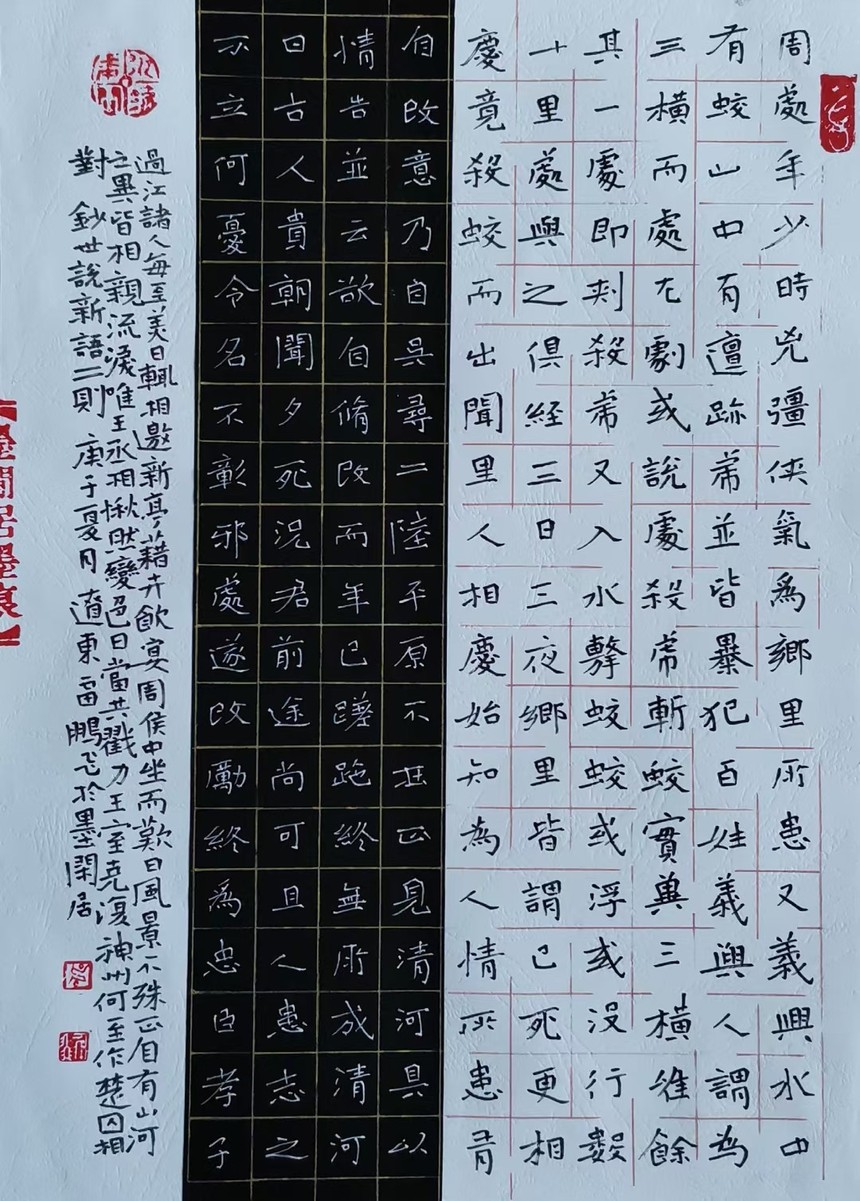 周處年少時兇彊俠氣爲鄉里所患又義興水中
有蛟山中有邅跡虎並皆暴犯百姓義興人謂為
三橫而處尤劇或說處殺虎斬蛟實冀三橫唯餘
其一處即刺殺虎又入水擊蛟蛟或浮或沒行數
十里處與之俱経三日三夜鄉里皆謂已死更相
慶竟殺蛟而出聞里人相慶始知為人情所患有
自改意乃自吳尋二陸平原不在正見清河具以
情告並云欲自脩改而年已蹉跎終無所成清河
曰古人貴朝聞夕死況君前途尚可且人患志之
不立何憂令名不彰邪處遂改勵終爲忠臣孝子
過江諸人每至美日輒相邀新亭藉卉飲宴周侯中坐而歎曰風景不殊正自有山河
之異皆相親流淚唯王丞相愀然變色曰當共戮力王室克復神州何至作楚囚相
對 鈔世說新語二則 庚子夏月 遼東雷鵬飛於墨閑居
【墨閑居墨痕】